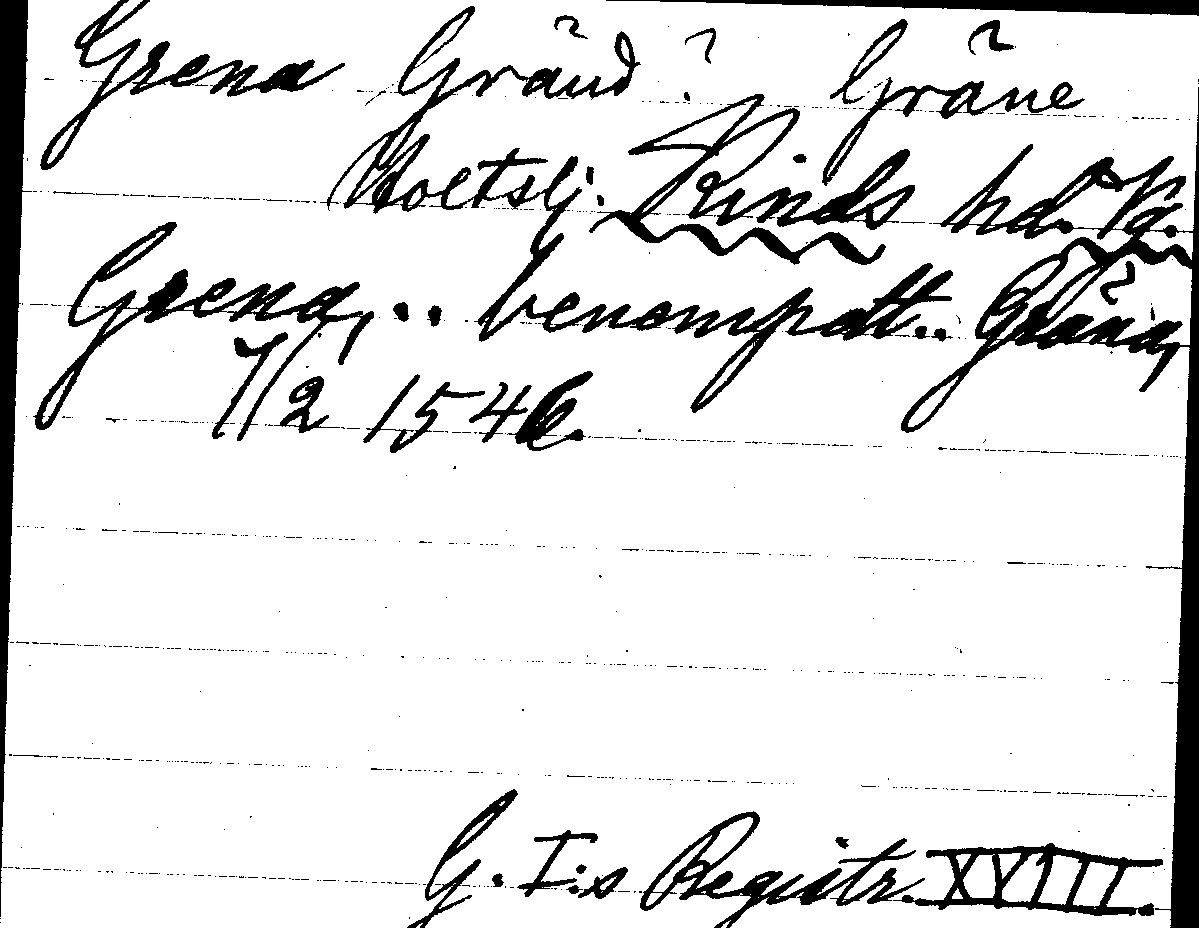 Grena Gränd? Gräne
Holtslj. Kinds hd. Vg.
Grena, .. benompdtt.. Gräna,
7/2 1546.
G. I:s Registr. XVIII.